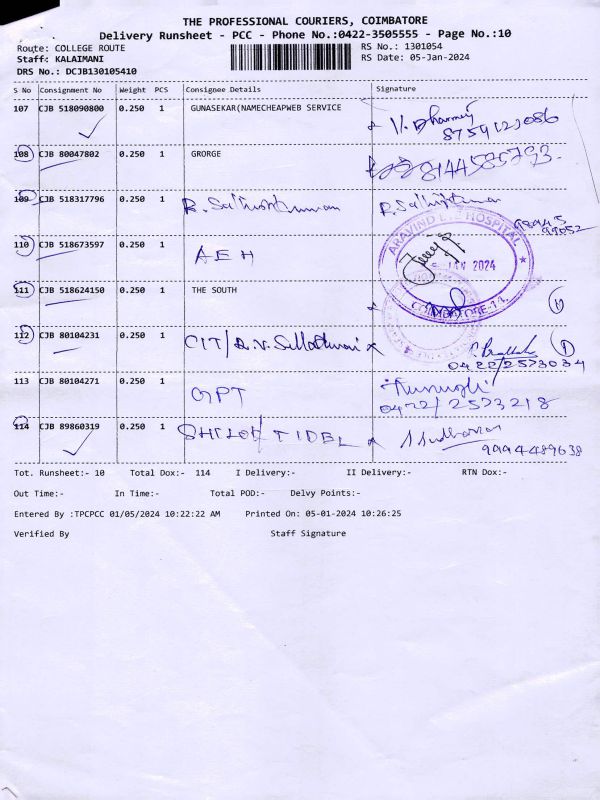 THE PROFESSIONAL COURIERS, COIMBATORE
Delivery Runsheet - PCC - Phone No.:0422-3505555 - Page No.:10
Route: COLLEGE ROUTE RS No.: 1301054
Staff: KALAIMANI RS Date: 05-Jan-2024
DRS No.: DCJB130105410
S No Consignment No Weight PCS Consignee Details Signature
107 CJB 518090800 0.250 1 GUNASEKAR(NAMECHEAPWEB SERVICE
108 CJB 80047802 0.250 1 GRORGE
109 CJB 518317796 0.250 1
110 CJB 518673597 0.250 1 AEH
ARAVIND EYE HOSPITAL
JAN 2024
COIMBATORE-14
111 CJB 518624150 0.250 1 THE SOUTH
112 CJB 80104231 0.250 1 CIT/
0422/2573034
113 CJB 80104271 0.250 1 GPT
0422/2573218
114 CJB 89860319 0.250 1 TIDEL
Tot. Runsheet:- 10 Total Dox:- 114 I Delivery:- II Delivery:- RTN Dox:-
Out Time:- In Time:- Total POD:- Delvy Points:-
Entered By :TPCPCC 01/05/2024 10:22:22 AM Printed On: 05-01-2024 10:26:25
Verified By Staff Signature